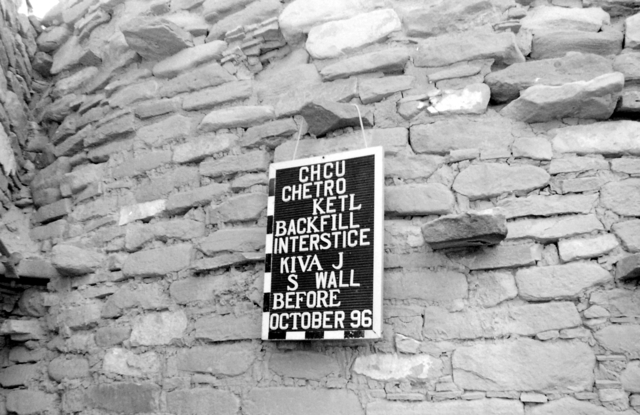 CHCU
CHETRO
KETL
BACKFILL
INTERSTICE
KIVA J
S WALL
BEFORE
OCTOBER 96